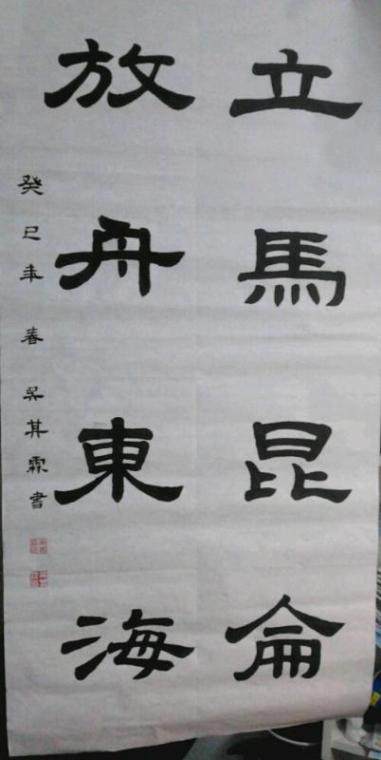 立馬昆侖
放舟東海
癸巳年春吴其霖書